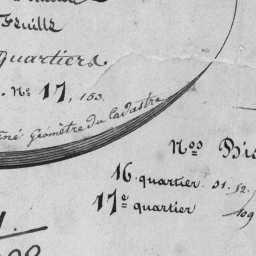 Feuille
Quartiers
. N° 17, 153.
né Géomètre du Cadastre
Nos Di
16. quartier 51. 52.
17e quartier 109